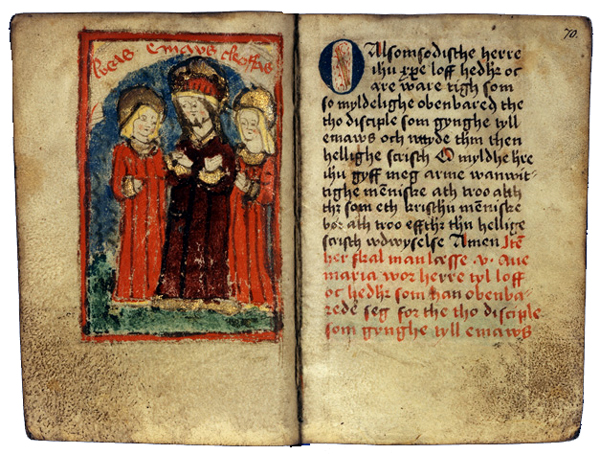 lucas emaus cleofas
70.
O Alsomsødisthe herre
ihu xpe loff hedhr oc
ære ware tigh som
so myldelighe obenbared the
tho disciple som gynghe tyll
emaws och wtyde thm then
hellighe scrifft O myldhe hre
ihu gyff meg arme wanwit-
tighe mēniske ath troo alth
thz som eth kristhu mēniske
bør ath troo effther thn hellige
scrifft wdwyselse Amen Itē
her skal man læsse .v. Aue
maria wor herre tyl loff
oc hedhr som han obenba
rede seg for the tho disciple
som gynghe tyll emaws